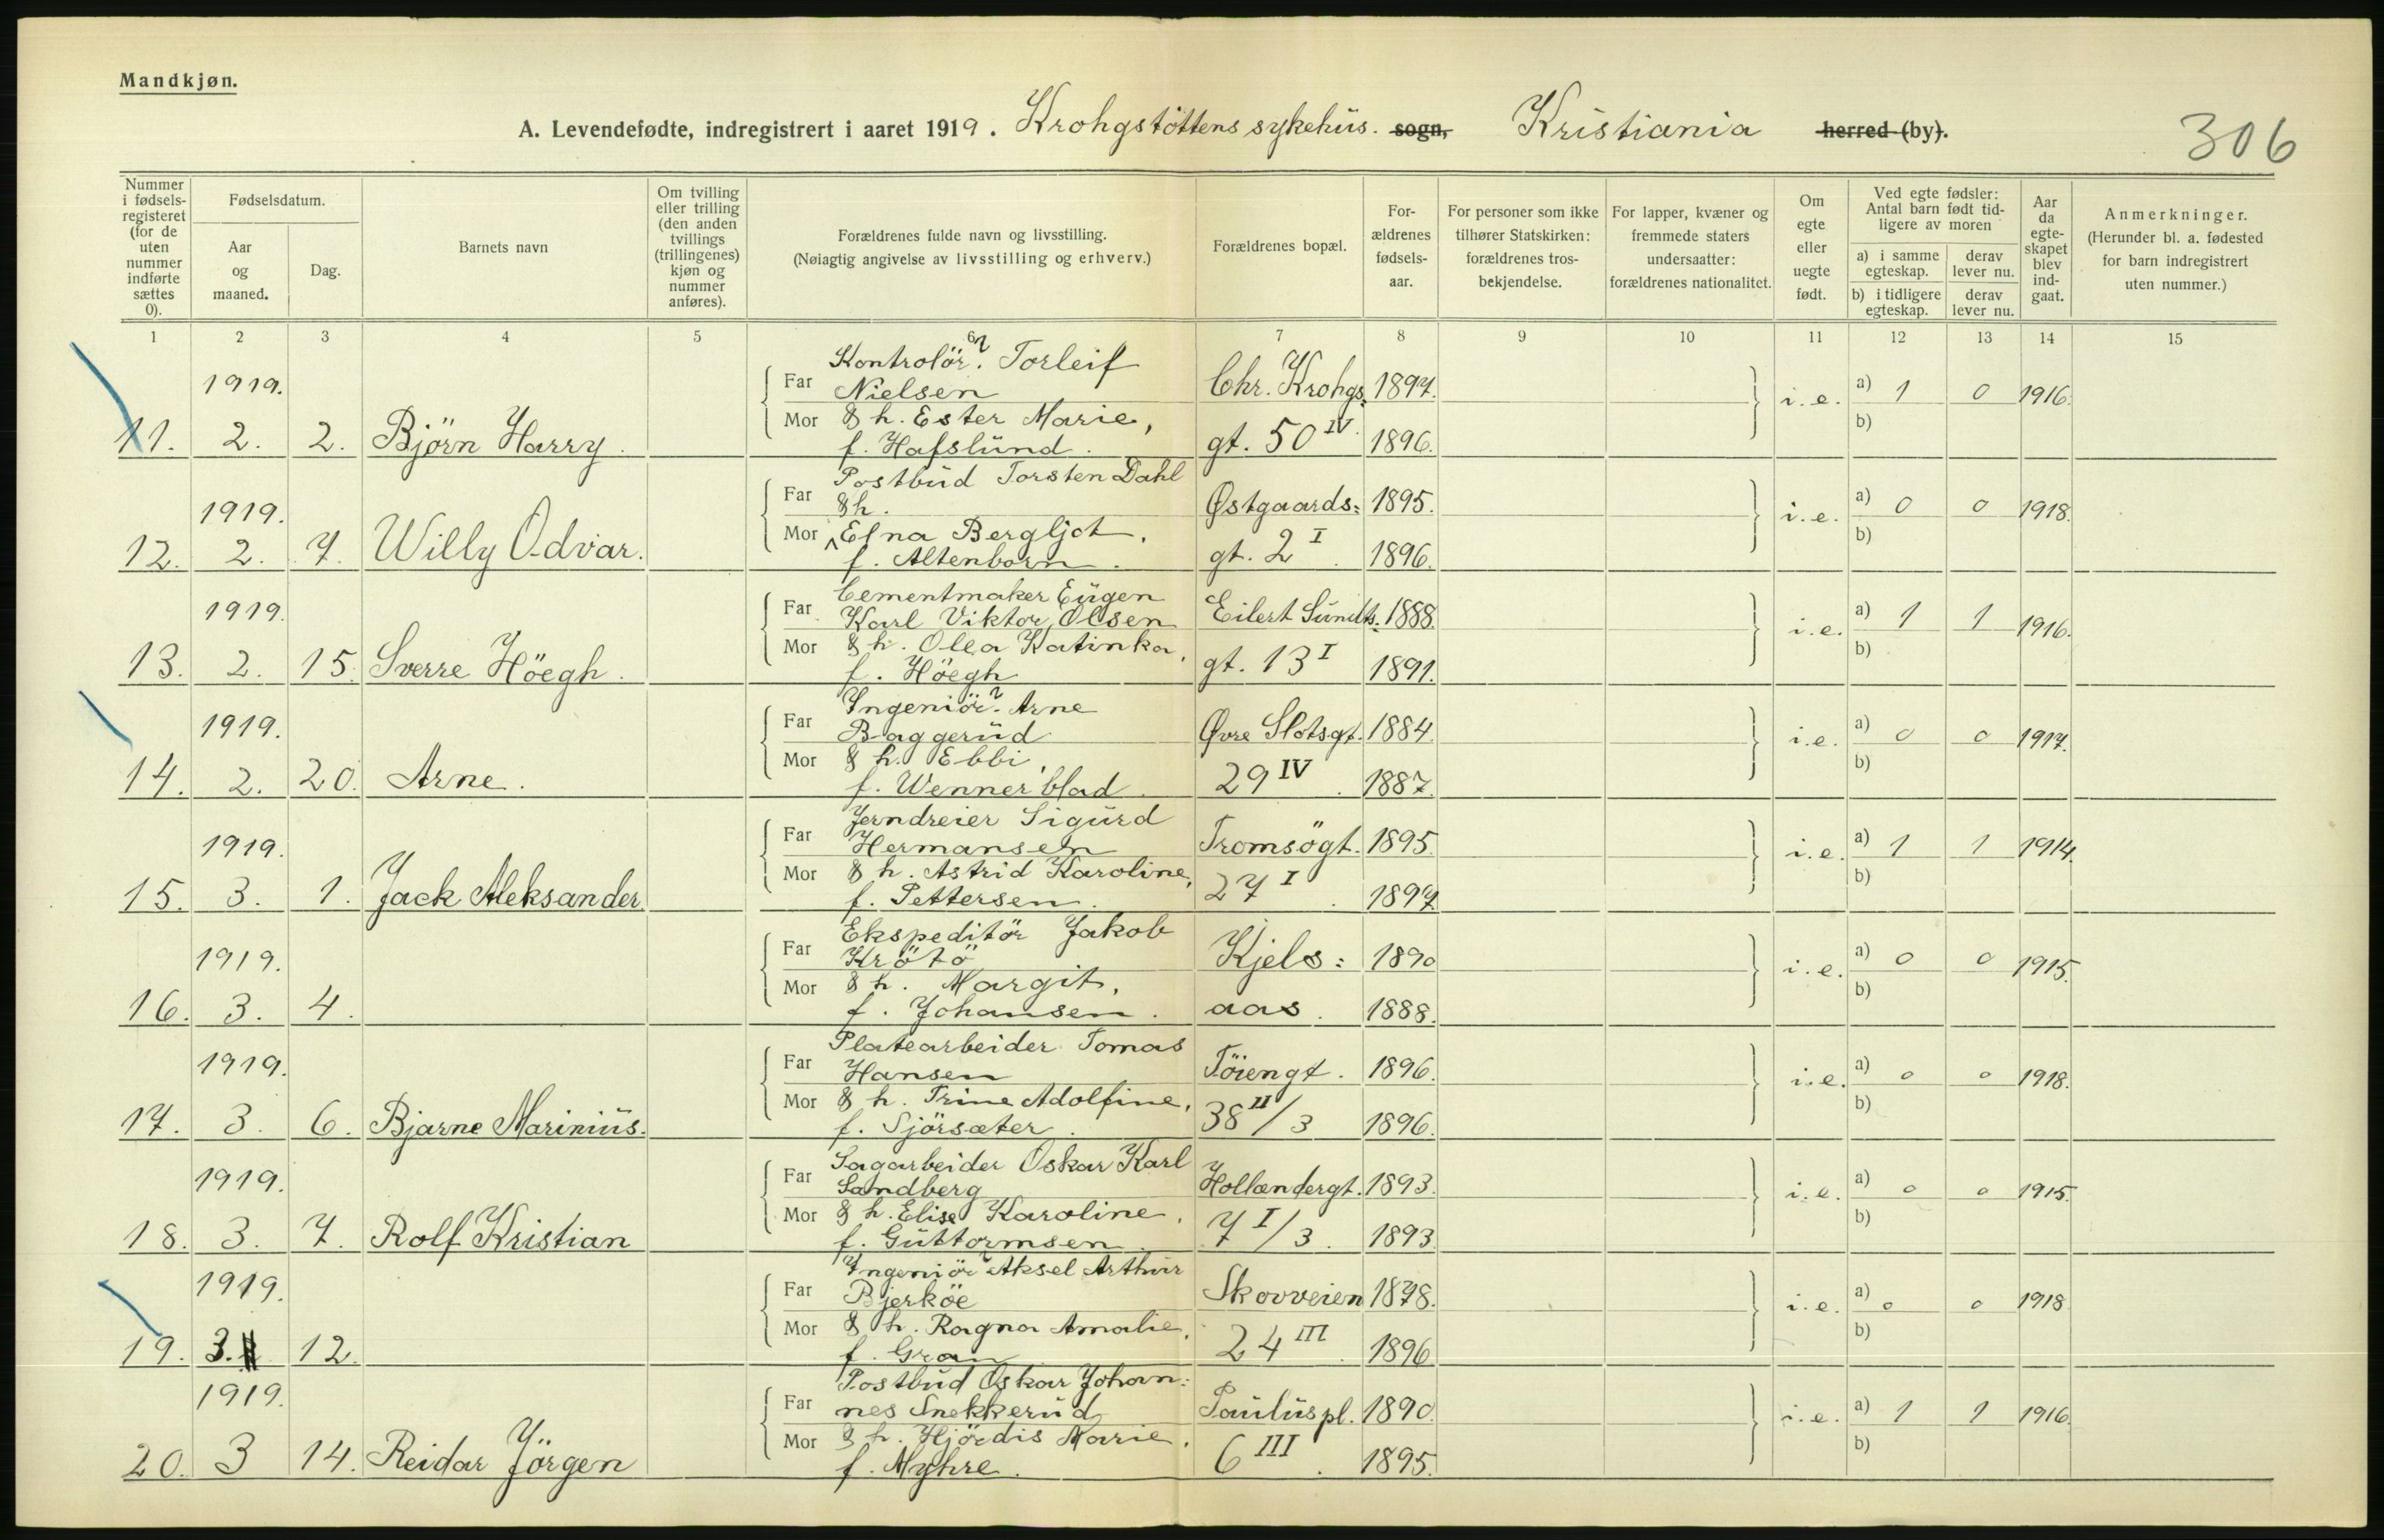 Mandkjøn.
A. Levendefødte, indregistrert i aaret 1919. Krohgstöttens sykehus. sogn, Kristiania herred (by).
306
Nummer i fødselsregisteret (for de uten nummer indførte sættes 0).
Fødselsdatum.
Aar og maaned.
Dag.
Barnets navn
Om tvilling eller trilling (den anden tvillings (trillingenes) kjøn og nummer anføres).
Forældrenes fulde navn og livsstilling.
(Nøiagtig angivelse av livsstilling og erhverv.)
Forældrenes bopæl.
For-ældrenes fødsels-aar.
For personer som ikke tilhører Statskirken: forældrenes tros-bekjendelse.
For lapper, kvæner og fremmede staters undersaatter: forældrenes nationalitet.
Om egte eller uegte født.
Ved egte fødsler: Antal barn født tid-ligere av moren
a) i samme egteskap.
derav lever nu.
b) i tidligere egteskap.
derav lever nu.
Aar da egte-skapet blev ind-gaat.
Anmerkninger.
(Herunder bl. a. fødested for barn indregistrert uten nummer.)
1 2 3 4 5 6 7 8 9 10 11 12 13 14 15
Kontrolör? Torleif
1919. Far Nielsen Chr. Krohgs: 1897. i.e. a) 1 0 1916.
Mor & h. Ester Marie, b)
11. 2. 2. Björn Harry. f. Hafslund. gt. 50 IV. 1896.
Postbud Torsten Dahl
1919. Far & h. Østgaards: 1895. i.e. a) 0 0 1918.
Mor Elna Bergljot, b)
12. 2. 7. Willy Odvar. f. Altenborn. gt. 2 I. 1896.
Cementmaker Eugen
1919. Far Karl Viktor Olsen Eilert Sundts: 1888. i.e. a) 1 1 1916.
Mor & h. Olea Katinka, b)
13. 2. 15. Sverre Höegh. f. Höegh gt. 13 I 1891.
Ingeniör? Arne
1919. Far Baggerud Øvre Slotsgt. 1884. i.e. a) 0 0 1917.
Mor & h. Ebbi, b)
14. 2. 20. Arne. f. Wennerblad. 29 IV. 1887.
Jerndreier Sigurd
1919. Far Hermansen Tromsögt. 1895. i.e. a) 1 1 1914.
Mor & h. Astrid Karoline, b)
15. 3. 1. Jack Aleksander. f. Pettersen. 27 I. 1897
Ekspeditör Jakob
1919. Far Krötö Kjels: 1890 i.e. a) 0 0 1915.
Mor & h. Margit, b)
16. 3. 4. f. Johansen. aas. 1888.
Platearbeider Tomas
1919. Far Hansen Töiengt. 1896. i.e. a) 0 0 1918.
Mor & h. Trine Adolfine, b)
17. 3. 6. Bjarne Marinius. f. Sjörsæter. 38 II/3 1896.
Sagarbeider Oskar Karl
1919. Far Sandberg Hollændergt. 1893. i.e. a) 0 0 1915.
Mor & h. Elise Karoline, b)
18. 3. 7. Rolf Kristian f. Guttormsen. 7 I/3. 1893
Ingeniör? Aksel Arthur
1919. Far Bjerköe Skovveien 1878. i.e. a) 0 0 1918
Mor & h. Ragna Amalie, b)
19. 3. 12. f. Gran 24 III. 1896
Postbud Oskar Johan:
1919. Far nes Snekkerud Pauluspl. 1890. i.e. a) 1 1 1916.
Mor & h. Hjördis Marie, b)
20. 3 14. Reidar Jörgen f. Myhre. 6 III. 1895.